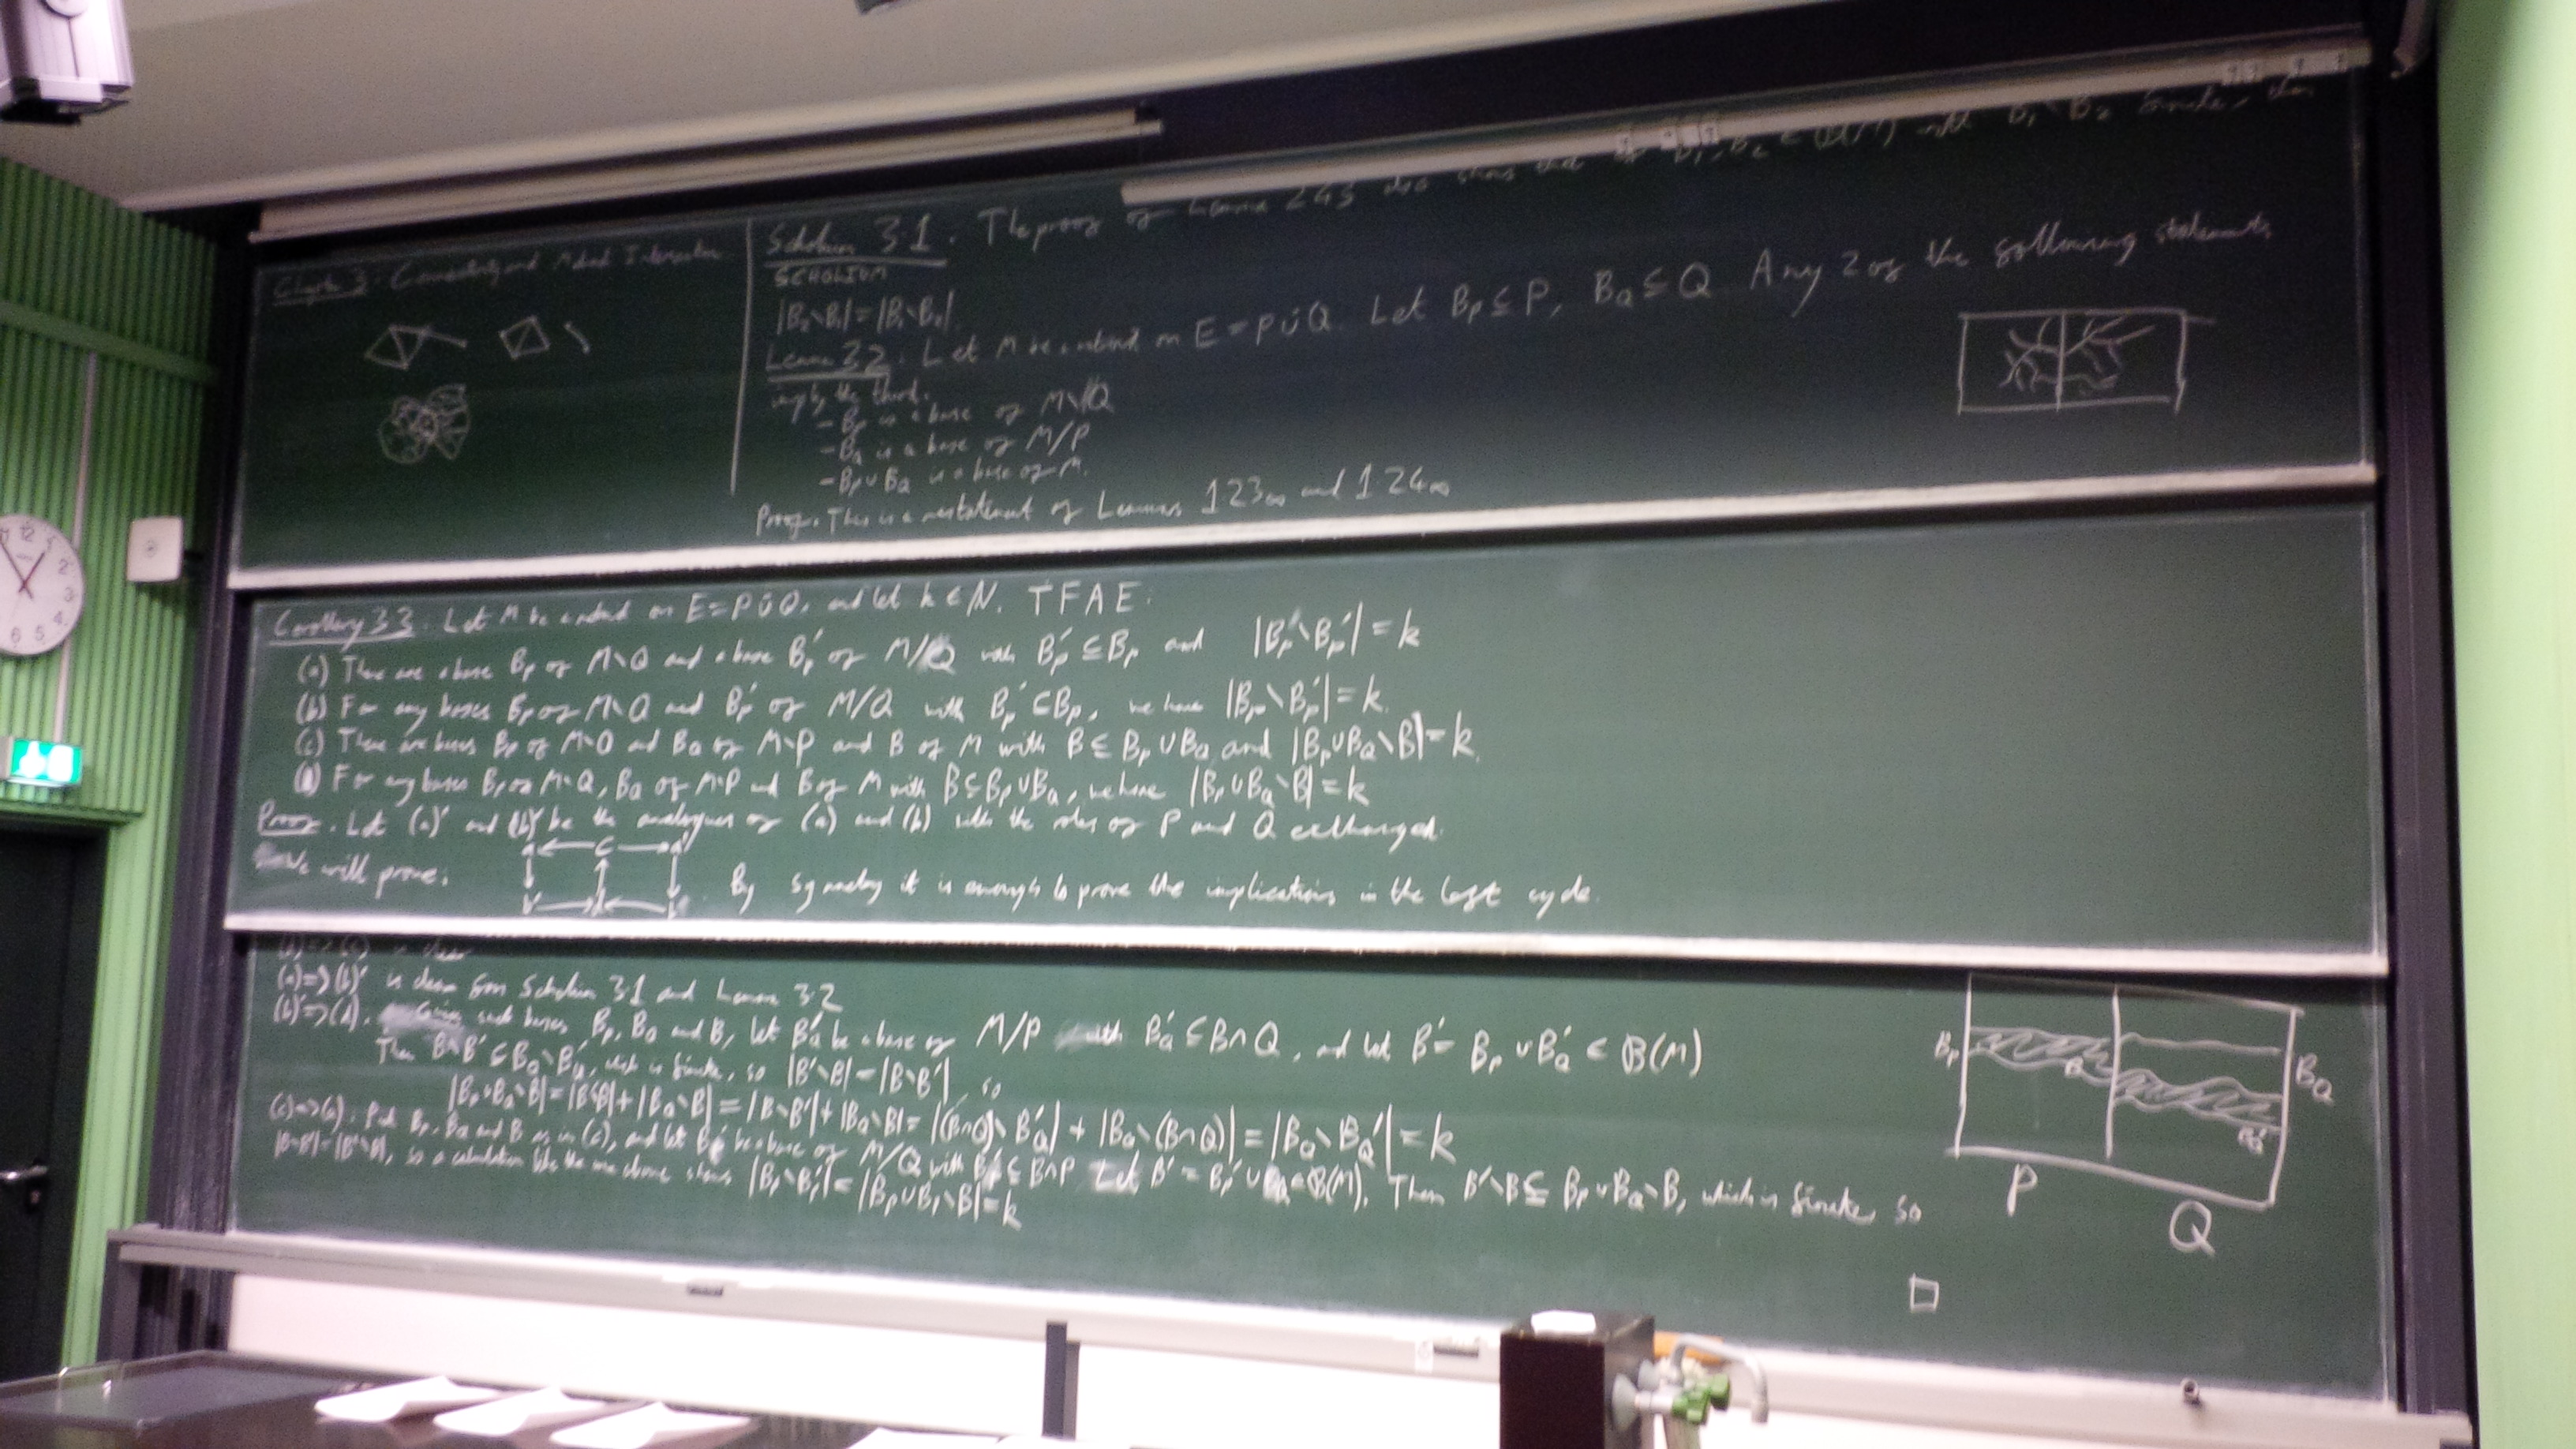 Chapter 3. Connectivity and Matroid Intersection
Scholium 3.1. The proof of Lemma 2.4.3 also shows that if B₁, B₂ ∈ B(M) with B₁∖B₂ finite, then
SCHOLIUM
|B₂∖B₁| = |B₁∖B₂|.
Lemma 3.2. Let M be a matroid on E = P ∪̇ Q. Let B_P ⊆ P, B_Q ⊆ Q. Any 2 of the following statements
imply the third.
- B_P is a base of M∖Q
- B_Q is a base of M/P
- B_P ∪ B_Q is a base of M.
Proof. This is a restatement of Lemmas 1.2.3∞ and 1.2.4∞
Corollary 3.3. Let M be a matroid on E = P ∪̇ Q, and let k ∈ ℕ. TFAE:
(a) There are a base B_P of M∖Q and a base B_P' of M/Q with B_P' ⊆ B_P and |B_P∖B_P'| = k
(b) For any bases B_P of M∖Q and B_P' of M/Q with B_P' ⊆ B_P, we have |B_P∖B_P'| = k.
(c) There are bases B_P of M∖Q and B_Q of M∖P and B of M with B ⊆ B_P ∪ B_Q and |B_P ∪ B_Q∖B| = k.
(d) For any bases B_P of M∖Q, B_Q of M∖P and B of M with B ⊆ B_P ∪ B_Q, we have |B_P ∪ B_Q∖B| = k
Proof. Let (a)' and (b)' be the analogues of (a) and (b) with the roles of P and Q exchanged.
We will prove: a ← c → a'
By symmetry it is enough to prove the implications in the left cycle.
(d) => (c) is clear
(a) => (b)' is clear from Scholium 3.1 and Lemma 3.2
(b)' => (d). Given such bases B_P, B_Q and B, let B_Q' be a base of M/P with B_Q' ⊆ B∩Q, and let B' = B_P ∪ B_Q' ∈ B(M)
Then B∖B' ⊆ B_Q∖B_Q', which is finite, so |B'∖B| = |B∖B'|, so
|B_P ∪ B_Q∖B| = |B'∖B| + |B_Q∖B| = |B∖B'| + |B_Q∖B| = |(B∩Q)∖B_Q'| + |B_Q∖(B∩Q)| = |B_Q∖B_Q'| = k
(c) => (a). Put B_P, B_Q and B as in (c), and let B_P' be a base of M/Q with B_P' ⊆ B∩P. Let B' = B_P' ∪ B_Q ∈ B(M). Then B'∖B ⊆ B_P ∪ B_Q∖B, which is finite, so
|B∖B'| = |B'∖B|, so a calculation like the one above shows |B_P∖B_P'| = |B_P ∪ B_Q∖B| = k
B_P
B
B_Q
B_Q'
P
Q
12
2
3
4
5
6